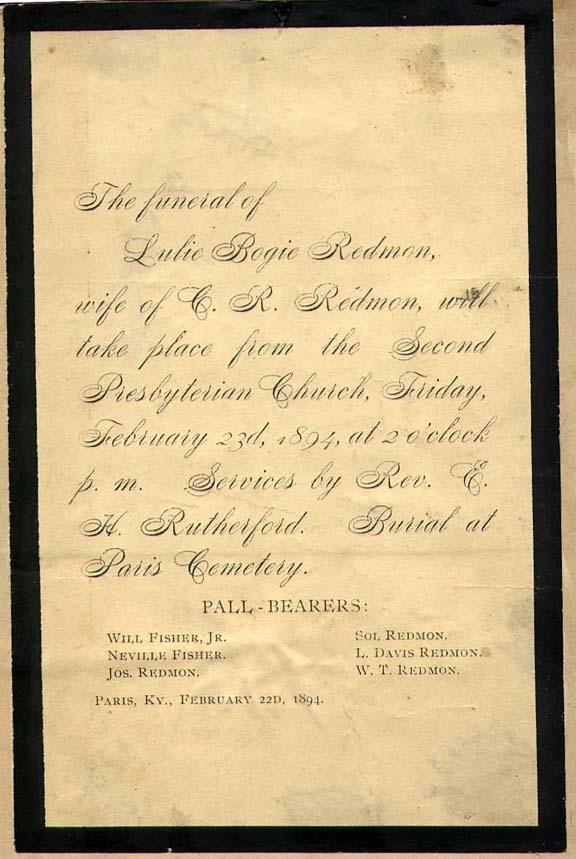 The funeral of
Lulie Bogie Redmon,
wife of C. R. Redmon, will
take place from the Second
Presbyterian Church, Friday,
February 23d, 1894, at 2 o'clock
p. m. Services by Rev. E.
H. Rutherford. Burial at
Paris Cemetery.
PALL-BEARERS:
WILL FISHER, JR. SOL REDMON.
NEVILLE FISHER. L. DAVIS REDMON.
JOS. REDMON. W. T. REDMON.
PARIS, KY., FEBRUARY 22D, 1894.